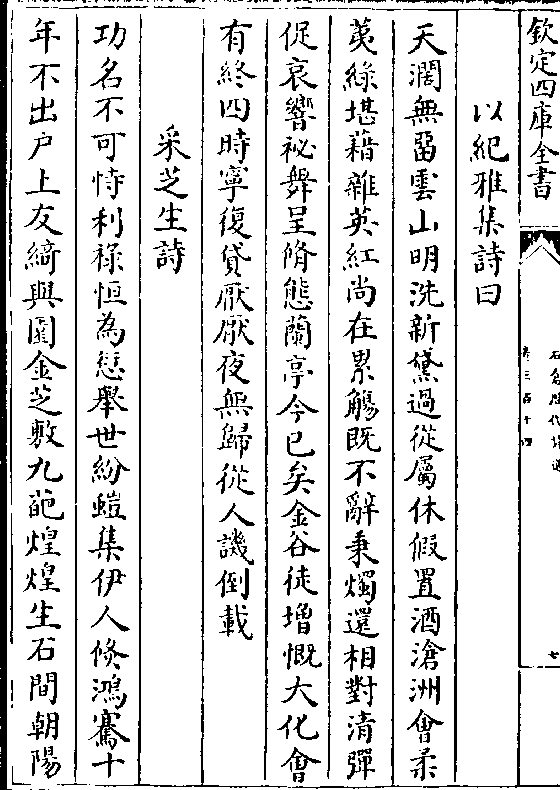 欽定四庫全書
石倉歷代詩選
卷三百十四
七
以紀雅集詩曰
天濶無畱雲山明洗新黛過從屬休假置酒滄洲㑹柔
荑綠堪藉雜英紅尚在累觴既不辭秉燭還相對清彈
促哀響袐舞呈脩態蘭亭今已矣金谷徒增慨大化㑹
有終四時寧復貸厭厭夜無歸從人譏倒載
采芝生詩
功名不可恃利祿恒為愆舉世紛螘集伊人倐鴻騫十
年不出户上友綺與園金芝敷九葩煌煌生石間朝陽